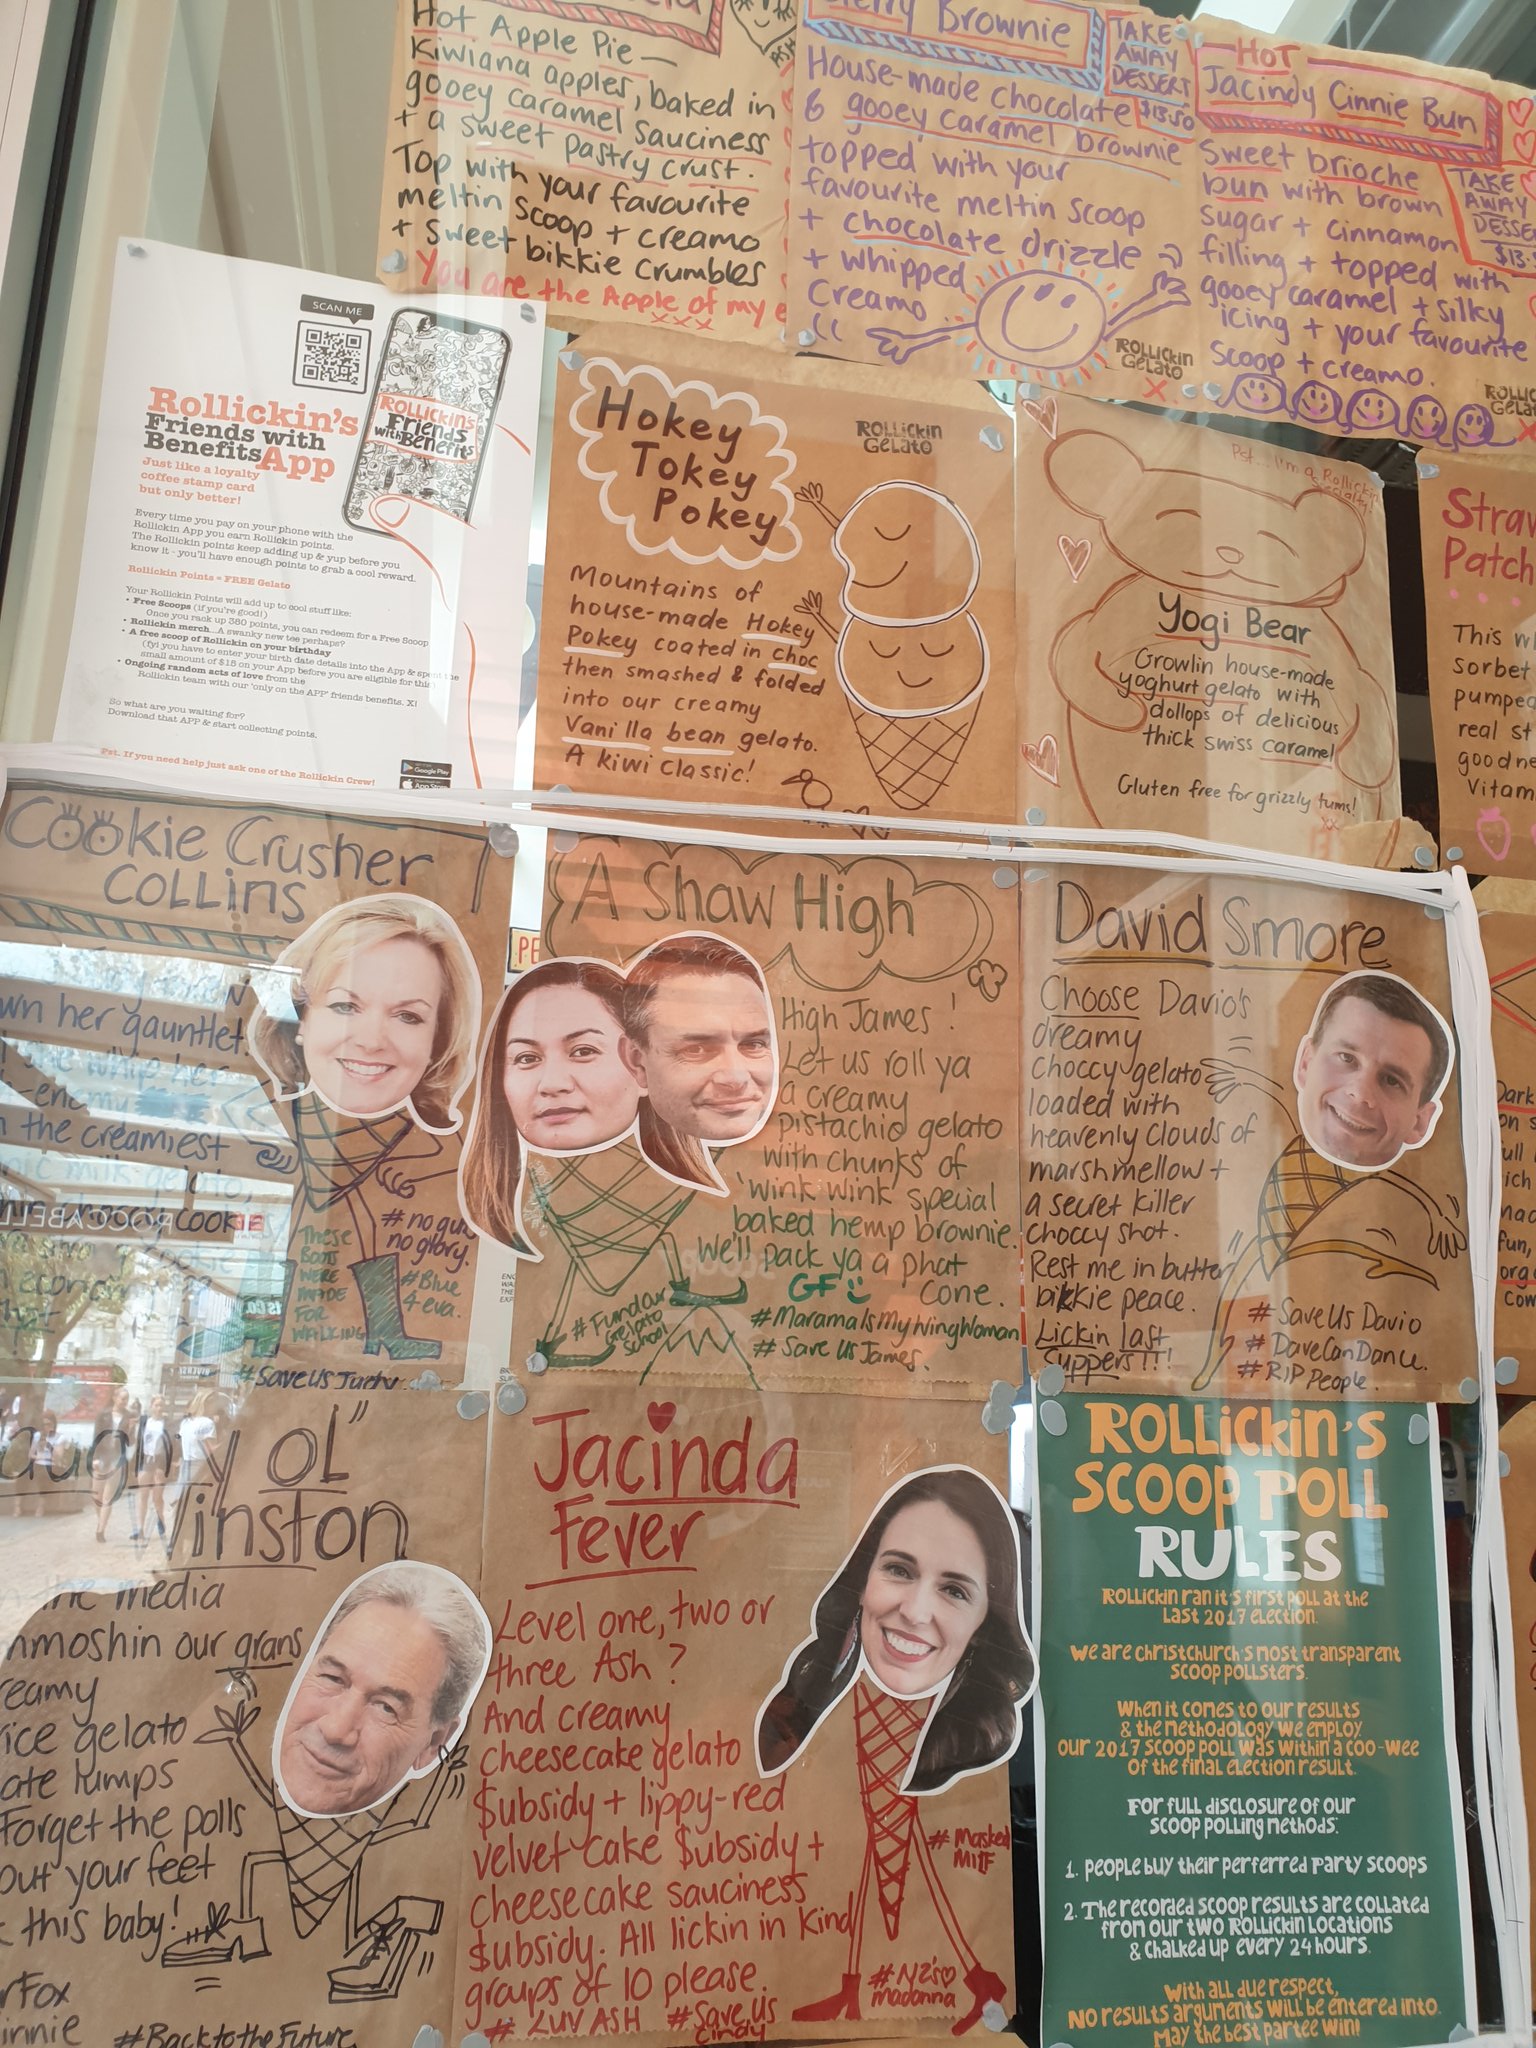 Hot Apple Pie —
Kiwiana apples, baked in
gooey caramel sauciness
+ a sweet pastry crust.
Top with your favourite
meltin scoop + creamo
+ sweet bikkie crumbles
You are the Apple of my
xxx
Brownie
TAKE
AWAY
DESSERT
$13.50
House-made chocolate
& gooey caramel brownie
topped with your
favourite meltin scoop
+ chocolate drizzle
+ whipped
Creamo
ROLLICKIN
GELATO
X
HOT
Jacindy Cinnie Bun
Sweet brioche
bun with brown
sugar + cinnamon
filling + topped with
gooey caramel + silky
icing + your favourite
scoop + creamo.
TAKE
AWAY
SCAN ME
Rollickin's
Friends with
Benefits App
Just like a loyalty
coffee stamp card
but only better!
ROLLICKIN'S
Friends
with Benefits
Every time you pay on your phone with the
Rollickin App you earn Rollickin points.
The Rollickin points keep adding up & yup before you
know it - you'll have enough points to grab a cool reward.
Rollickin Points = FREE Gelato
Your Rollickin Points will add up to cool stuff like:
• Free Scoops (if you're good!)
Once you rack up 380 points, you can redeem for a Free Scoop
• Rollickin merch...A swanky new tee perhaps?
• A free scoop of Rollickin on your birthday
(fyi you have to enter your birth date details into the App & spent the
small amount of $15 on your App before you are eligible for this)
• Ongoing random acts of love from the
Rollickin team with our 'only on the APP' friends benefits. X!
So what are you waiting for?
Download that APP & start collecting points.
Pst. If you need help just ask one of the Rollickin Crew!
Google Play
App Store
Hokey
Tokey
Pokey
ROLLICKIN
GELATO
Mountains of
house-made Hokey
Pokey coated in choc
then smashed & folded
into our creamy
Vanilla bean gelato.
A kiwi classic!
Pst... I'm a Rollickin
Specialty!
Yogi Bear
Growlin house-made
yoghurt gelato with
dollops of delicious
thick swiss caramel
Gluten free for grizzly tums!
xx
Patch
This
sorbet
real
Cookie Crusher
Collins
her gauntlet.
the creamiest
milk gelato,
cookies
THESE
BOOTS
WERE
MADE
FOR
WALKING
# no guts
no glory.
# Blue
4 eva.
#SaveUsJudy
A Shaw High
High James!
Let us roll ya
a creamy
pistachio gelato
with chunks of
'wink wink' special
baked hemp brownie.
We'll pack ya a phat
GF Cone.
# FundOur
Gelato
School
#MaramaIsMyWingWoman
# Save Us James.
David Smore
Choose Davio's
dreamy
choccy gelato
loaded with
heavenly clouds of
marshmellow +
a secret killer
choccy shot.
Rest me in butter
bikkie peace.
Lickin last
suppers!!!
# SaveUs Davio
# DaveCanDance.
# RIP People.
ol"
Winston
the media
our grans
gelato
Forget the polls
your feet
this baby!
#BacktotheFuture
Jacinda
Fever
Level one, two or
three Ash?
And creamy
cheesecake gelato
$ubsidy + lippy-red
velvet cake $ubsidy +
cheesecake sauciness
$ubsidy. All lickin in kind
groups of 10 please.
# LUV ASH #Save Us
Cindy
# Masked
MILF
# NZ's
madonna
ROLLiCKin'S
SCOOP POLL
RULES
ROLLiCKin ran it's first poll at the
last 2017 election.
We are christchurch's most transparent
scoop pollsters.
When it comes to our results
& the methodology we employ
our 2017 scoop poll was within a coo-wee
of the final election result.
For full disclosure of our
scoop polling methods:
1. people buy their perferred party scoops
2. The recorded scoop results are collated
from our two ROLLiCKin locations
& chalked up every 24 hours.
With all due respect,
no results arguments will be entered into.
May the best partee win!